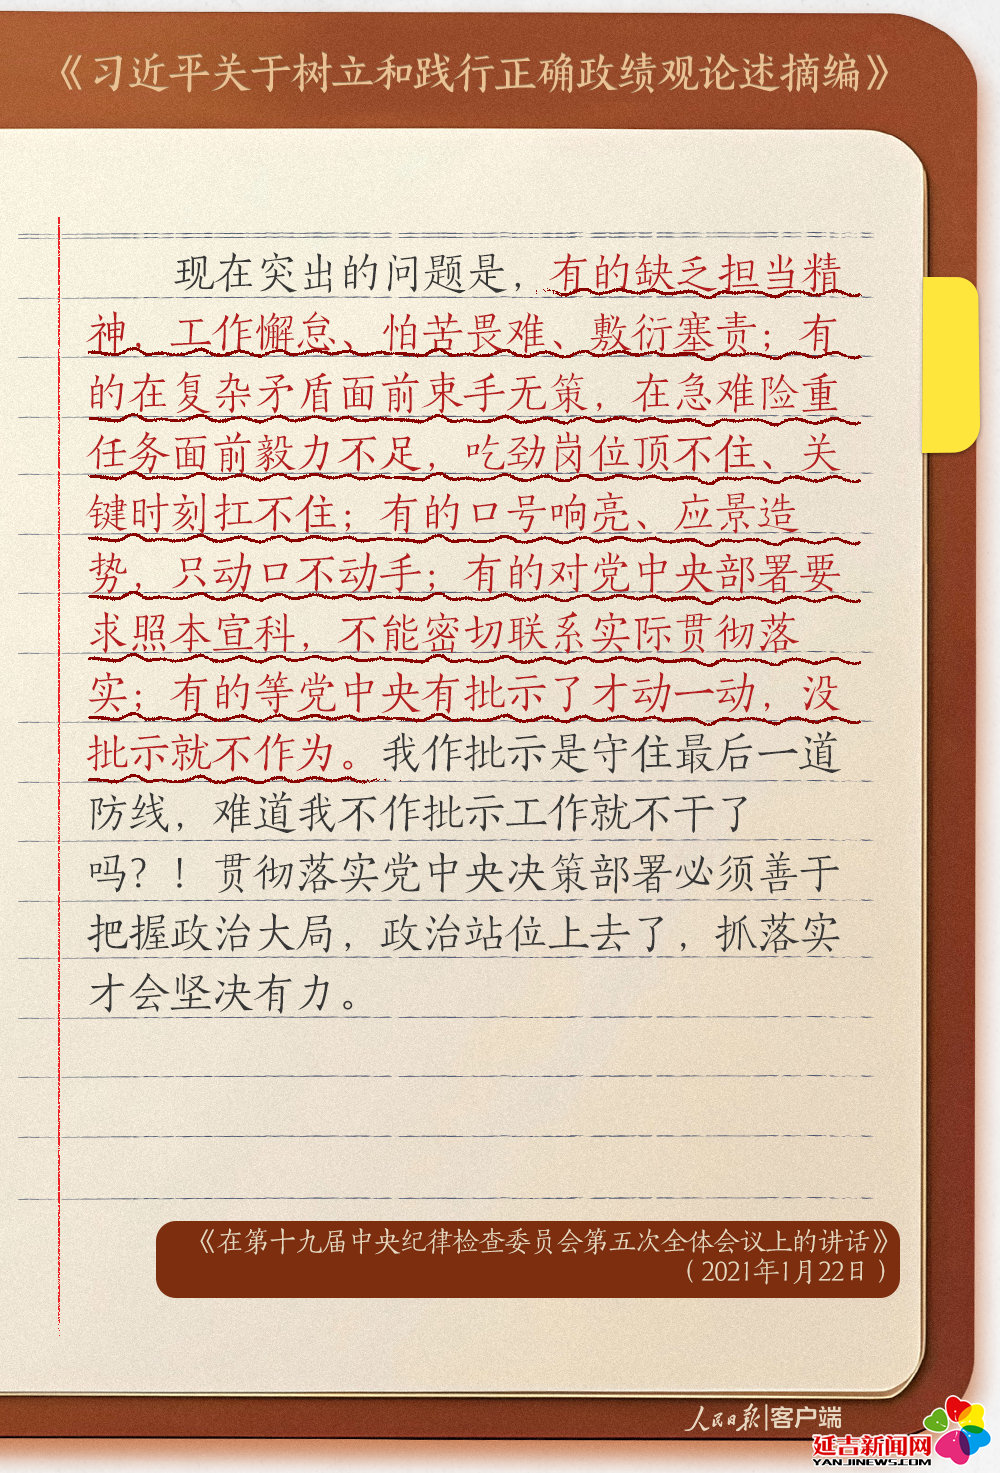 《习近平关于树立和践行正确政绩观论述摘编》
现在突出的问题是，有的缺乏担当精
神，工作懈怠、怕苦畏难、敷衍塞责；有
的在复杂矛盾面前束手无策，在急难险重
任务面前毅力不足，吃劲岗位顶不住、关
键时刻扛不住；有的口号响亮、应景造
势，只动口不动手；有的对党中央部署要
求照本宣科，不能密切联系实际贯彻落
实；有的等党中央有批示了才动一动，没
批示就不作为。我作批示是守住最后一道
防线，难道我不作批示工作就不干了
吗？！贯彻落实党中央决策部署必须善于
把握政治大局，政治站位上去了，抓落实
才会坚决有力。
《在第十九届中央纪律检查委员会第五次全体会议上的讲话》
（2021年1月22日）
人民日报|客户端
延吉新闻网
YANJINEWS.COM